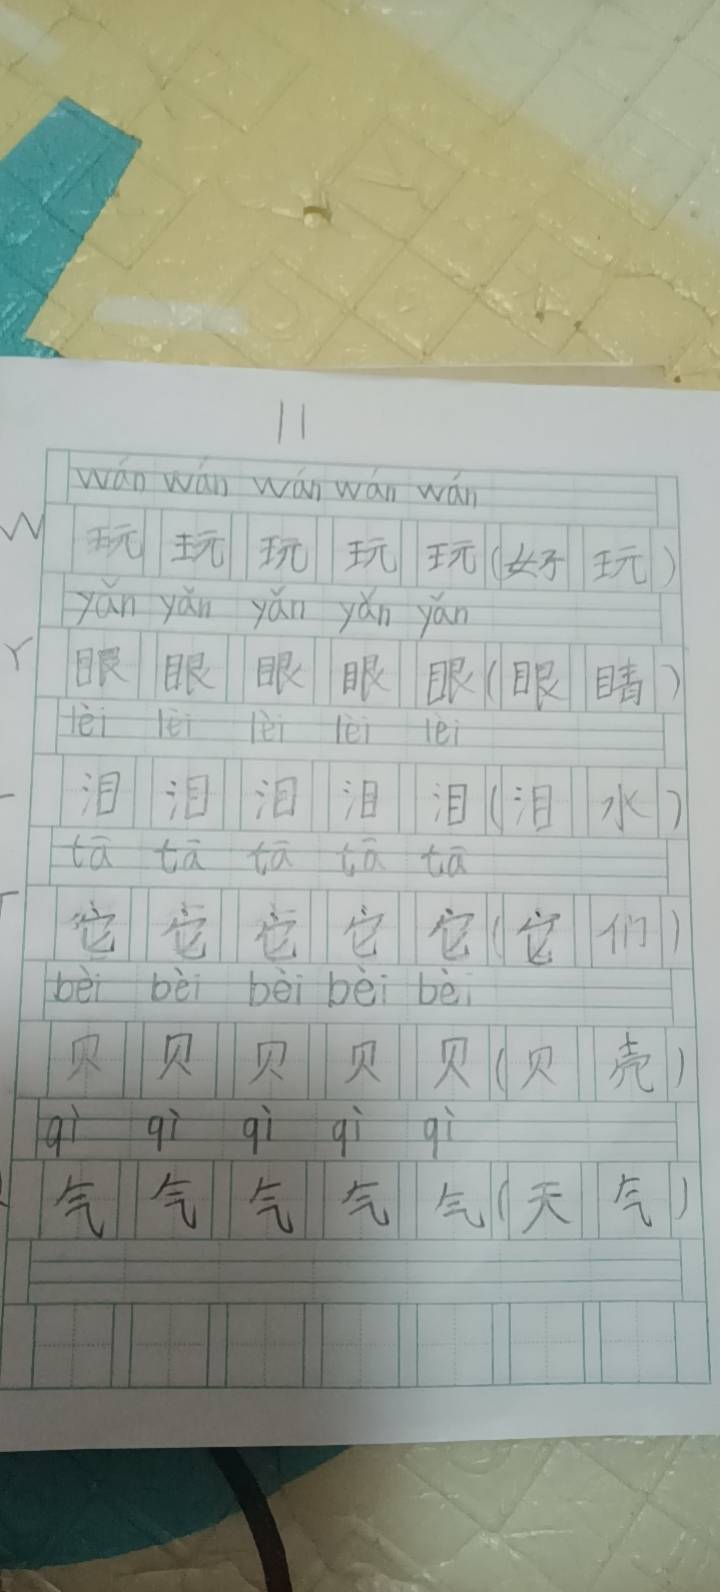 11
wán wán wán wán wán
W 玩 玩 玩 玩 玩 (好 玩)
yǎn yǎn yǎn yǎn yǎn
Y 眼 眼 眼 眼 眼 (眼 睛)
lèi lèi lèi lèi lèi
泪 泪 泪 泪 泪 (泪 水)
tā tā tā tā tā
它 它 它 它 它 (它 们)
bèi bèi bèi bèi bèi
贝 贝 贝 贝 贝 (贝 壳)
qì qì qì qì qì
气 气 气 气 气 (天 气)